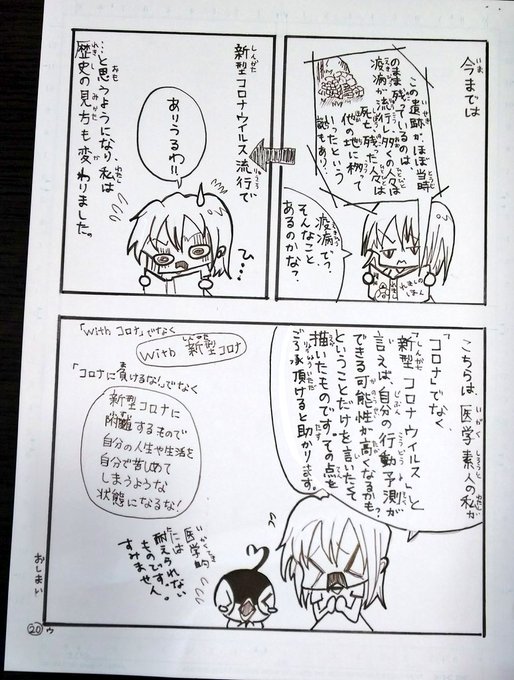 今までは
この遺跡がほぼ当時
のまま残っているのは
疫病が流行し多くの人々は
死亡、残った人々は
他の地に移って
いったという
説もあり…
疫病で?
そんなこと
あるのかな?
れきしの
しほん
新型コロナウイルス流行で
ありうるわ!!
ひ…
…と思うようになり、私は
歴史の見方も変わりました。
こちらは、医学素人の私が
「コロナ」でなく、
「新型コロナウイルス」と
言えば、自分の行動予測が
できる可能性が高くなるかも?
ということだけを言いたくて
描いたものです。その点を
ご了承頂けると助かります。
「withコロナ」でなく
with 新型コロナ
「コロナに負けるな!」でなく
新型コロナに
附難するもので
自分の人生や生活を
自分で苦しめて
しまうような
状態になるな!
医学的
には
耐えられない
ものです。
すみません。
おしまい
20